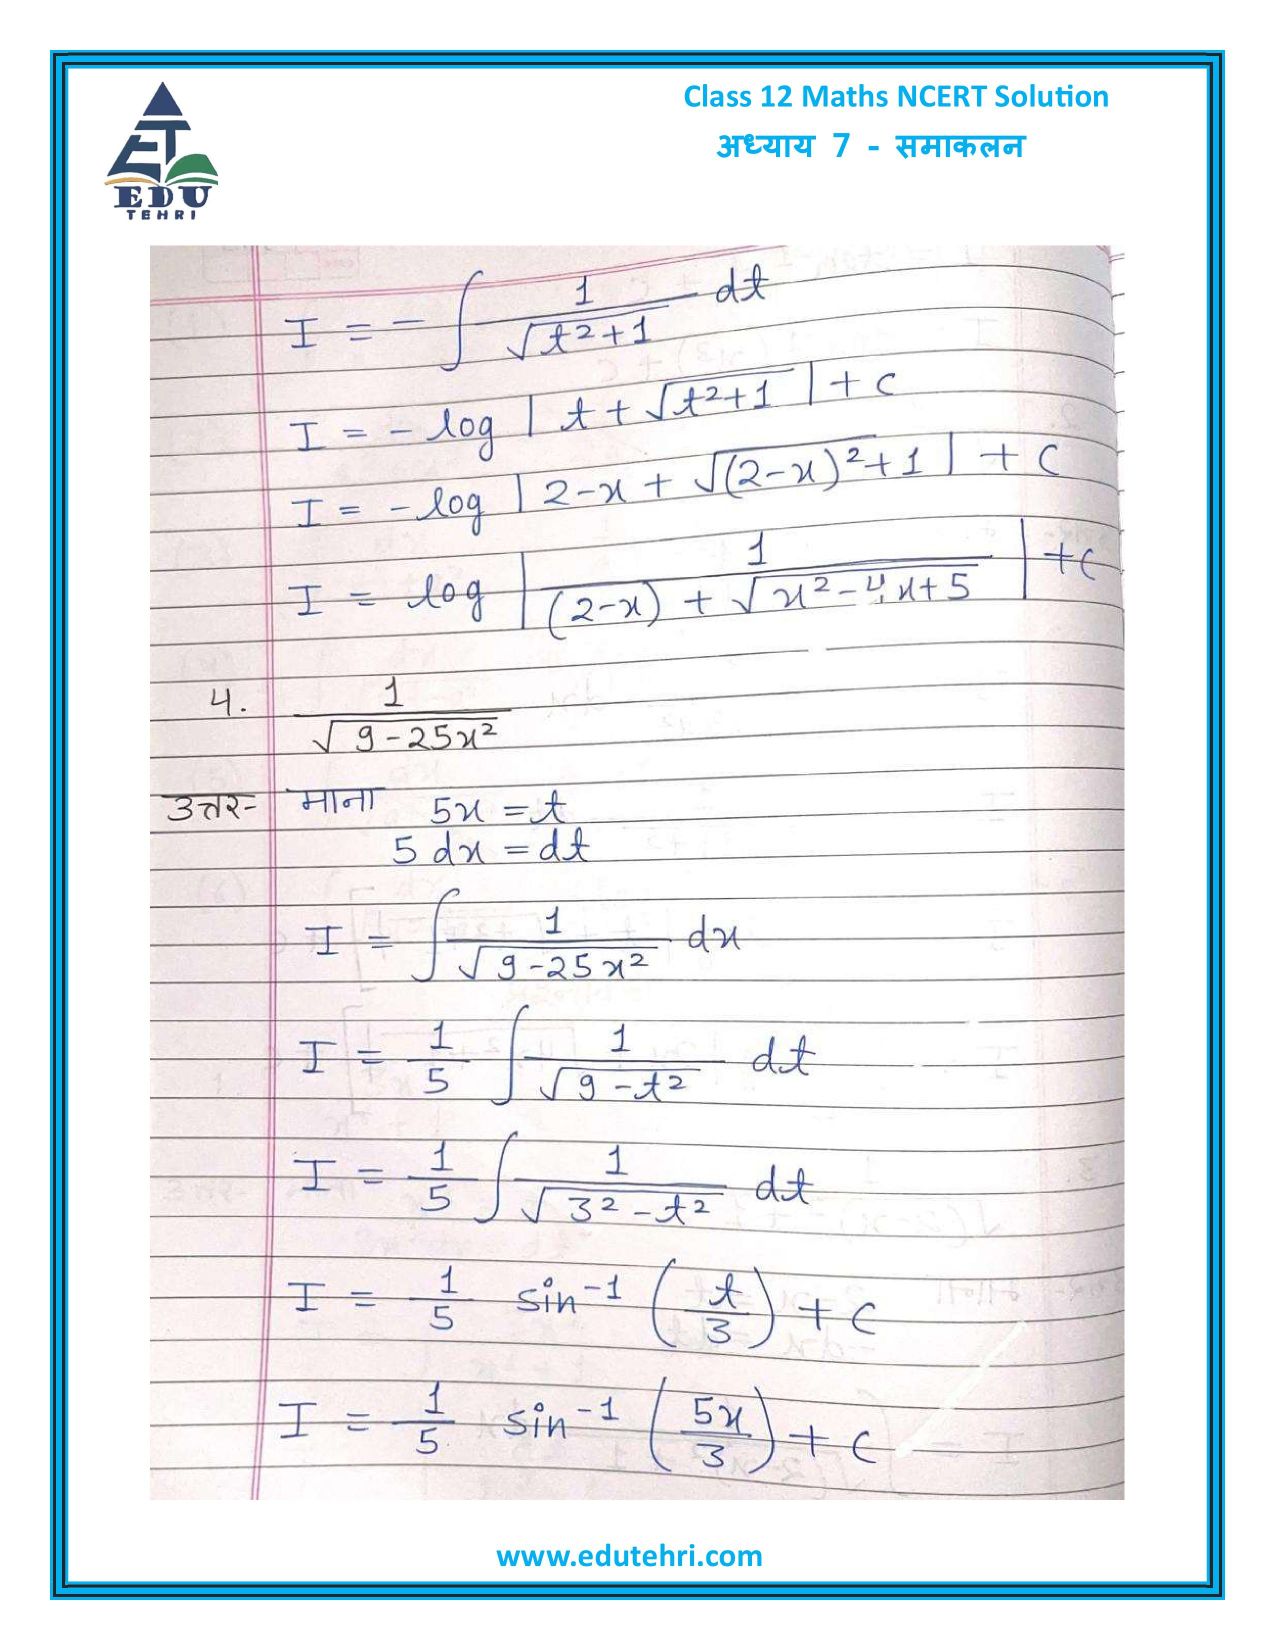 Class 12 Maths NCERT Solution
अध्याय 7 - समाकलन
EDU
TEHRI
I = - ∫ 1/√(t²+1) dt
I = - log | t + √(t²+1) | + c
I = - log | 2-x + √((2-x)²+1) | + c
I = log | 1/((2-x) + √(x²-4x+5)) | + c
4. 1/√(9-25x²)
उत्तर- माना 5x = t
5 dx = dt
I = ∫ 1/√(9-25x²) dx
I = 1/5 ∫ 1/√(9-t²) dt
I = 1/5 ∫ 1/√(3²-t²) dt
I = 1/5 sin⁻¹ (t/3) + c
I = 1/5 sin⁻¹ (5x/3) + c
www.edutehri.com